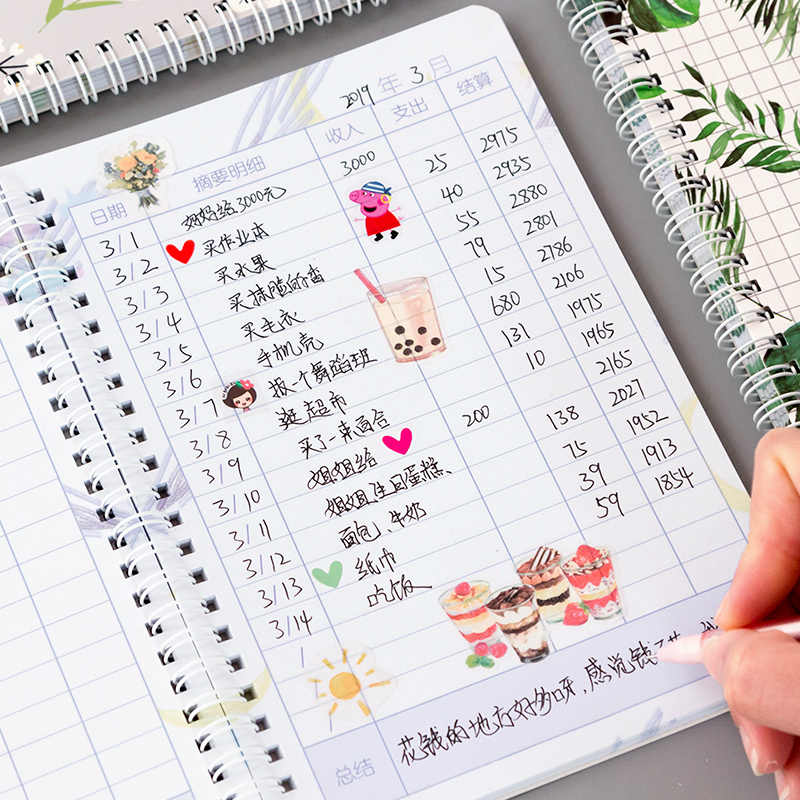 2019 年 3 月
日期 摘要明细 收入 支出 结算
3/1 妈妈给3000元 3000
3/2 买作业本 25 2975
3/3 买水果 40 2935
3/4 买 55 2880
3/5 买毛衣 79 2801
3/6 手机壳 15 2786
3/7 报一个舞蹈班 680 2106
3/8 逛超市 131 1975
3/9 买了一束百合 10 1965
3/10 姐姐给 200 2165
3/11 姐姐生日蛋糕、 138 2027
3/12 面包、牛奶 75 1952
3/13 纸巾 39 1913
3/14 吃饭 59 1854
/
/
总结 花钱的地方好多呀,感觉钱